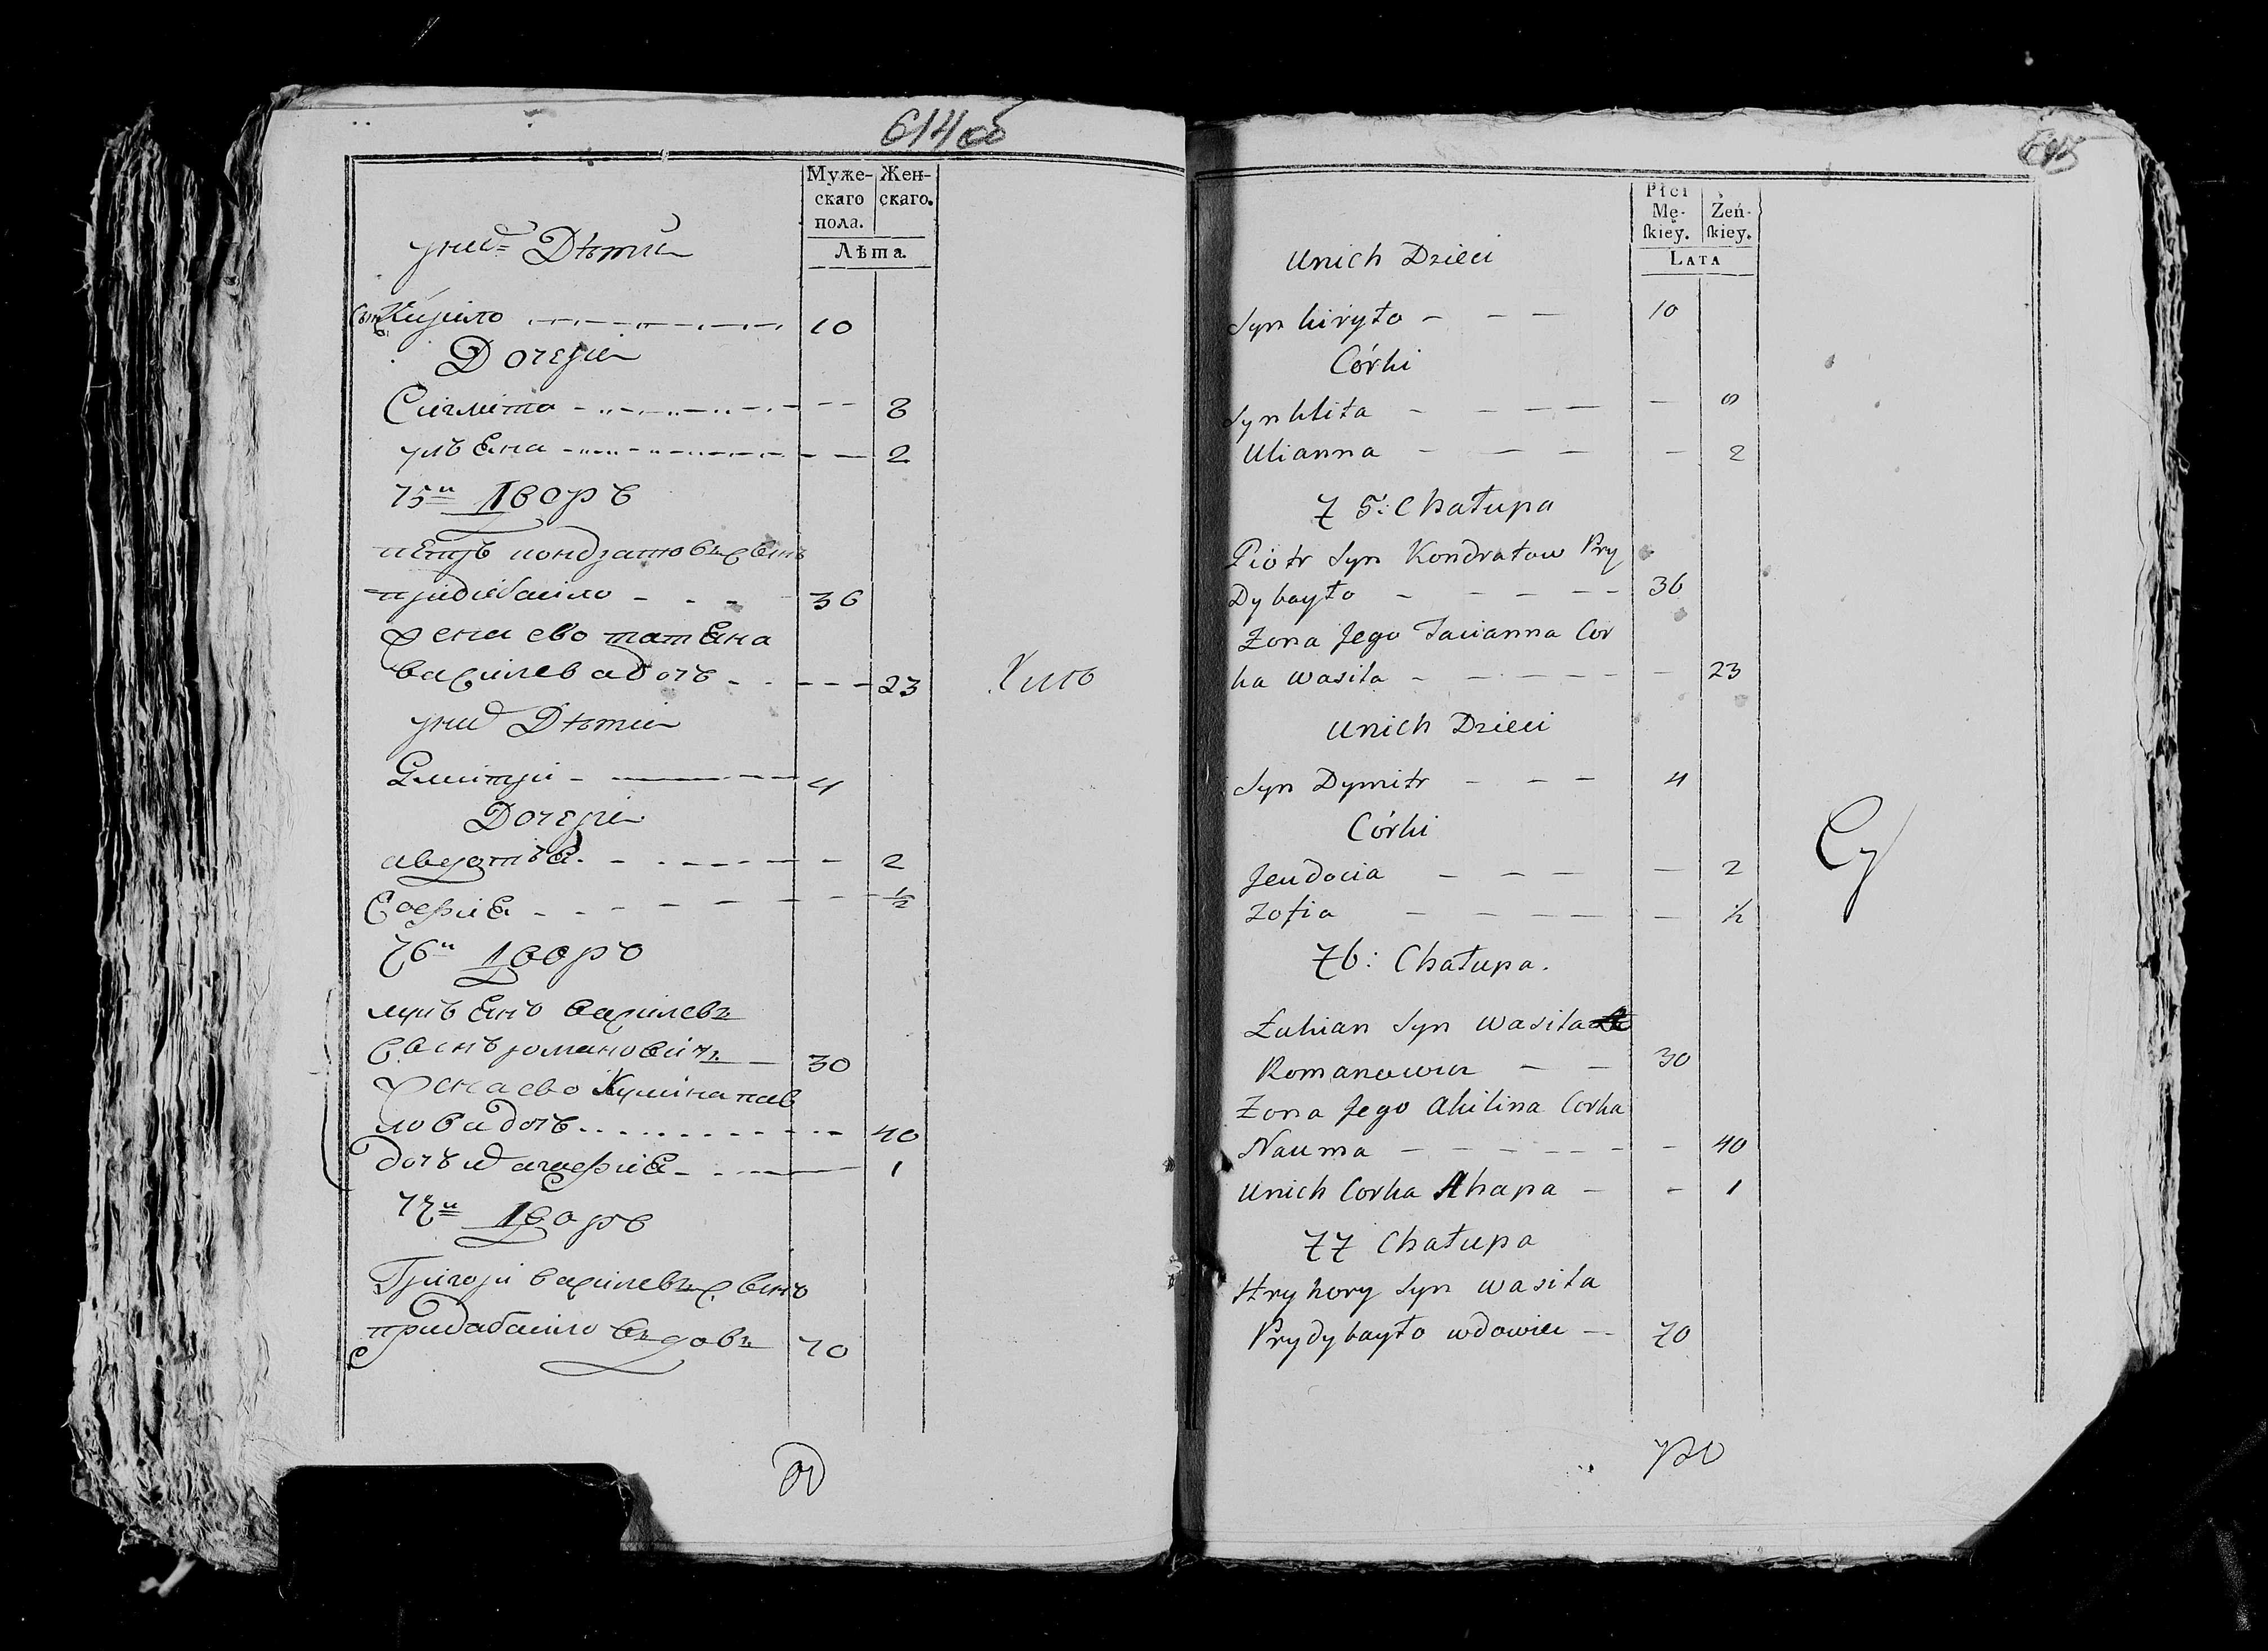 614об
Муже- Жен-
скаго скаго.
пола.
Лѣта.
уних Дѣти
Сын Кирило 10
Дочери
Сиглита 8
улъена 2
75й Дворъ
петръ кондратовъ сынъ
придибайло 36
жена ево татяна
василева дочъ 23
уних Дѣти
Дмитри 4
Дочери
авдотъя 2
София 1/2
76й Дворъ
лукъянъ василевъ
сынъ романовичъ 30
жена ево Кулина пав
лова дочъ 40
дочъ их агафия 1
77й Дворъ
Григори василевъ сынъ
придабайло вдовъ 70
615
Płci
Mę- Żeń-
skiey. skiey.
LATA
Unich Dzieci
Syn kiryło 10
Córki
Synklita 8
Ulianna 2
75: Chałupa
Piotr Syn Kondratow Pry
Dybayło 36
Żona Jego Tacianna Cor
ka wasila 23
Unich Dzieci
Syn Dymitr 4
Córki
Jeudocia 2
Zofia 1/2
76: Chałupa.
Łukian Syn wasila
Romanowicz 30
Żona Jego Akilina Corka
Nauma 40
Unich Corka Ahapa 1
77 Chałupa
Hryhory Syn wasila
Prydybayło wdowiec 70